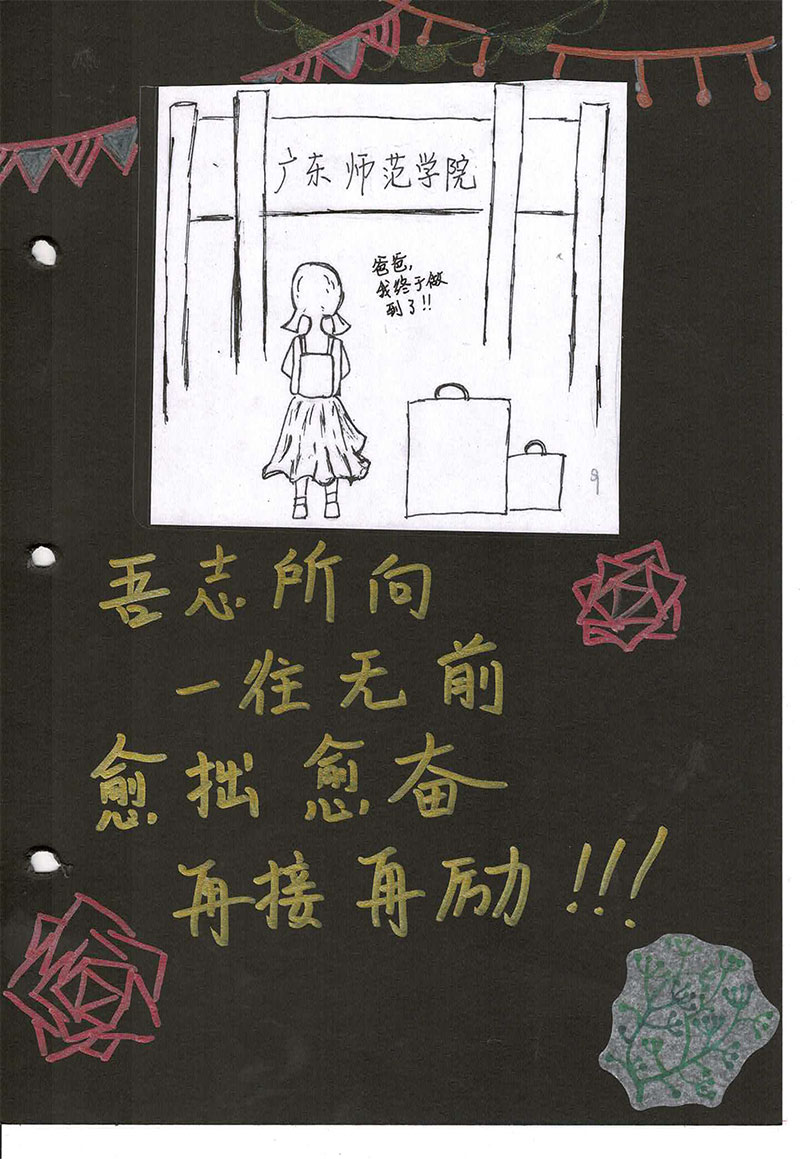 广东师范学院
爸爸,
我终于做
到了!!
吾志所向
一往无前
愈拙愈奋
再接再励!!!